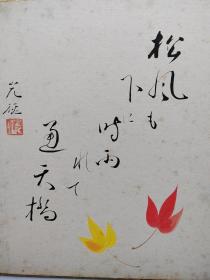 松風も
下に
時雨
れて
通天橋